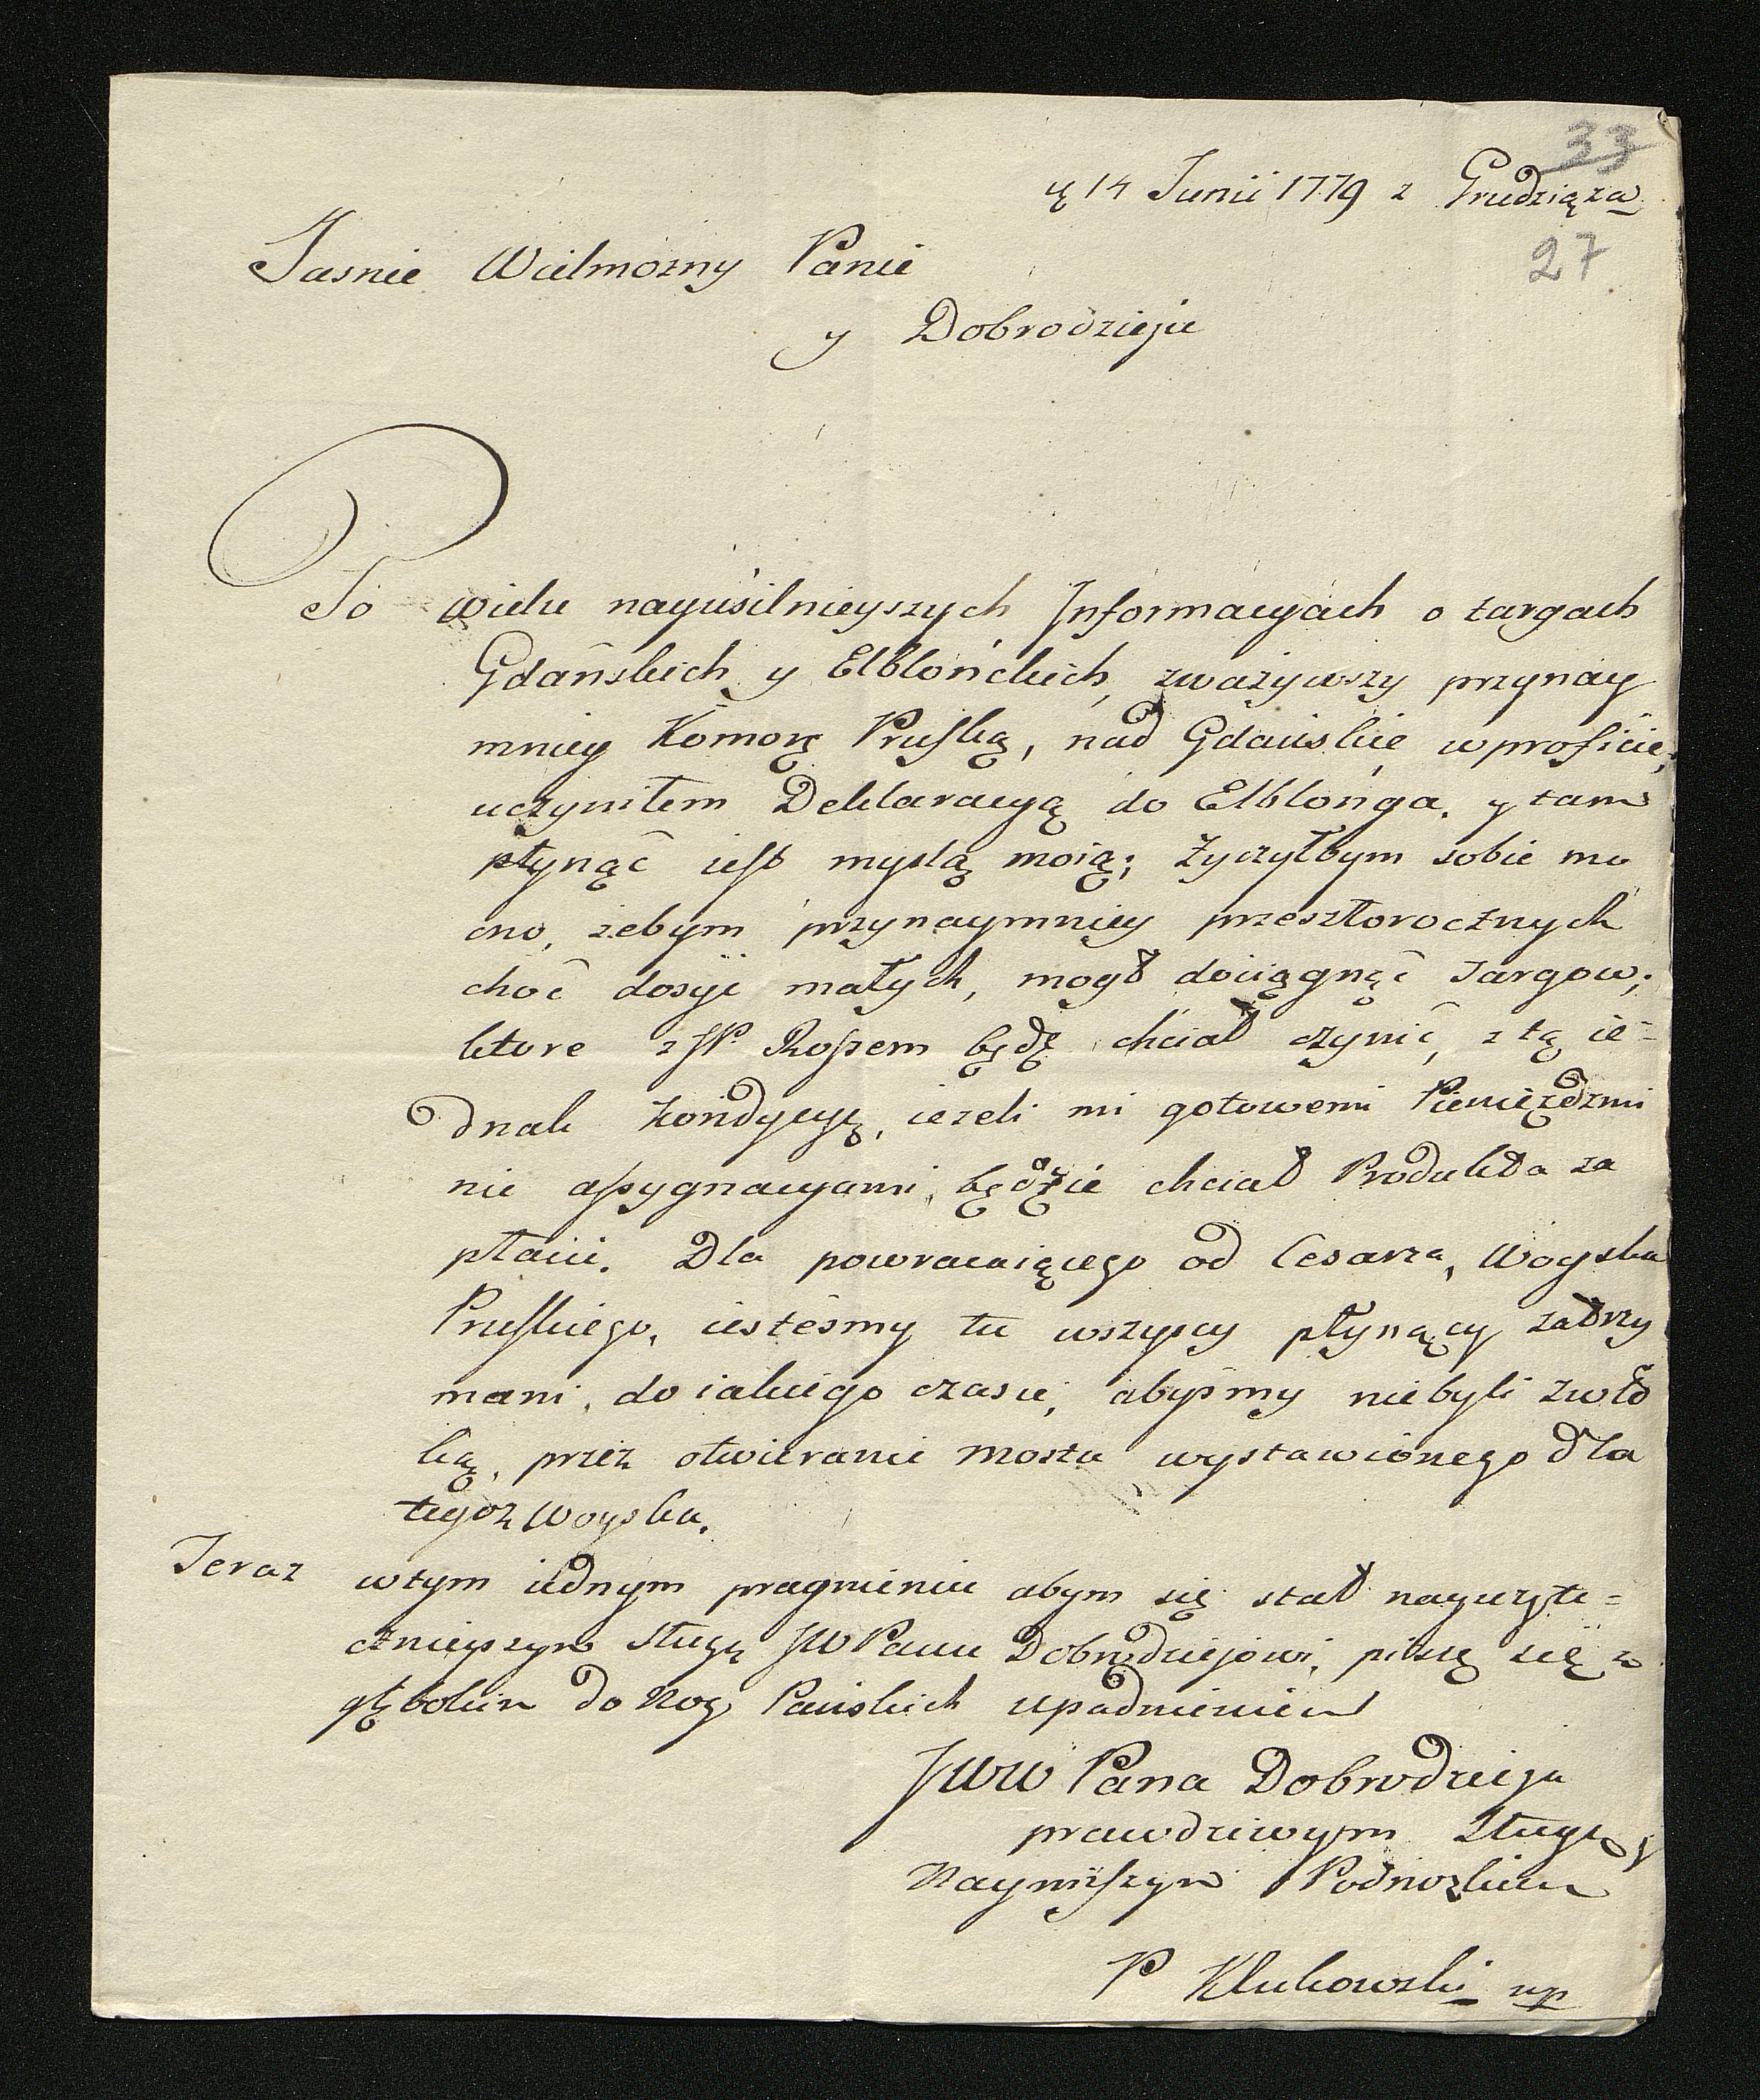 33
ą 14 Junii 1779 z Grudziąza
27
Jasnie Wielmozny Panie
y Dobrodzieju
Po wielu nayusilnieyszych Informacyach o targach
Gdańskich y Elblońckich, zważywszy przynay
mniey Komorę Pruską, nad Gdańskie w proficie,
uczyniłem Deklaracyą do Elblonga. y tam
płynąć iest myslą moią; Zyczyłbym sobie mo
cno, żebym przynaymniey przeszłorocznych
choć dosyć małych, mogł dociągnąć Targow;
ktore z JP. Rossem będę chciał czynić, z tą ie=
dnak Kondycyą, ieżeli mi gotowemi Pieniędzmi
nie assygnacyami, będzie chciał Produkta za
płacić. Dla powracaiącego od Cesarza, Woyska
Pruskiego, iestesmy tu wszyscy płynący zatrzy
mani, do iakiego czasu, abyśmy nie byli zwło
ką, przez otwieranie mostu wystawionego dla
tegoz Woyska.
Teraz w tym iednym pragnieniu abym się stał nayużyte=
cznieyszym sługą JW Panu Dobrodziejowi, piszę się z
głębokim do Nog Pańskich upadnieniem
JWW Pana Dobrodzieja
prawdziwym sługą y
Nayniższym Podnozkiem
P Klukowski mp